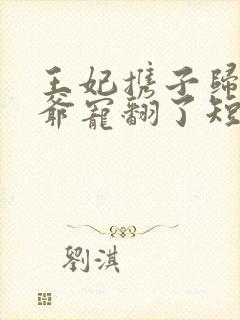 王妃攜子歸
爺寵翻了短
劉淇